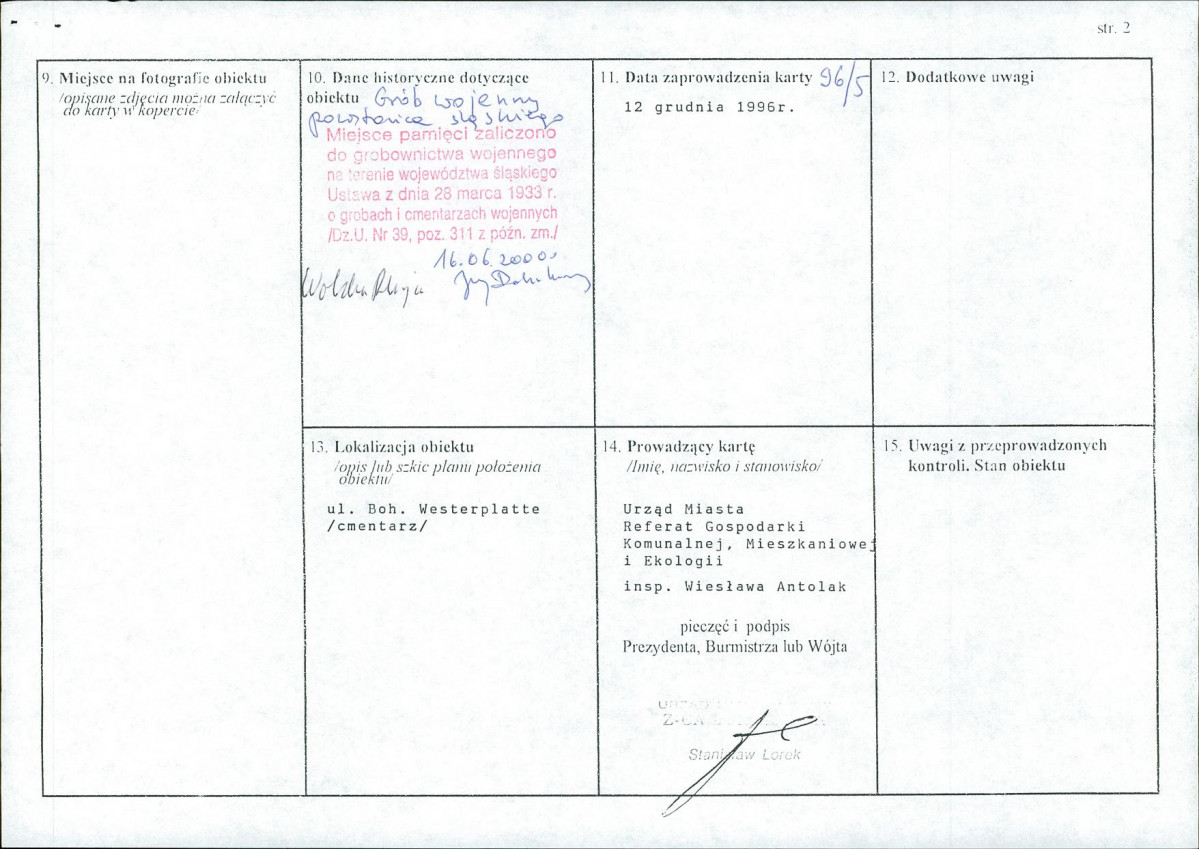 str. 2
9. Miejsce na fotografie obiektu
/opisane zdjęcia można załączyć
do karty w kopercie/
10. Dane historyczne dotyczące
obiektu Grób wojenny
powstańca śląskiego
Miejsce pamięci zaliczono
do grobownictwa wojennego
na terenie województwa śląskiego
Ustawa z dnia 28 marca 1933 r.
o grobach i cmentarzach wojennych
/Dz.U. Nr 39, poz. 311 z późn. zm./
16.06.2000r.
11. Data zaprowadzenia karty 96/5
12 grudnia 1996r.
12. Dodatkowe uwagi
13. Lokalizacja obiektu
/opis lub szkic planu położenia
obiektu/
ul. Boh. Westerplatte
/cmentarz/
14. Prowadzący kartę
/Imię, nazwisko i stanowisko/
Urząd Miasta
Referat Gospodarki
Komunalnej, Mieszkaniowej
i Ekologii
insp. Wiesława Antolak
pieczęć i podpis
Prezydenta, Burmistrza lub Wójta
Stanisław Lorok
15. Uwagi z przeprowadzonych
kontroli. Stan obiektu